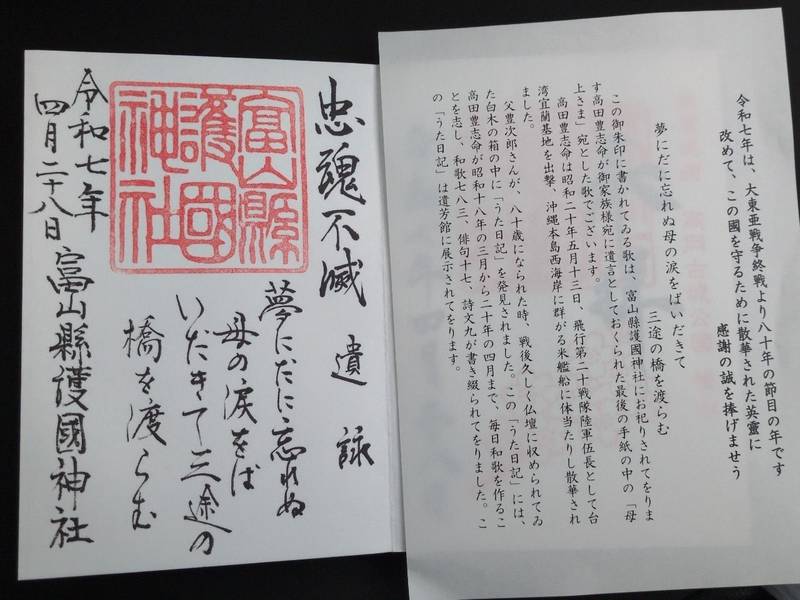 令和七年は、大東亜戦争終戦より八十年の節目の年です
改めて、この國を守るために散華された英靈に
感謝の誠を捧げませう
夢にだに忘れぬ母の涙をばいだきて
三途の橋を渡らむ
この御朱印に書かれてゐる歌は、富山縣護國神社にお祀りされてをりま
す高田豊志命が御家族様宛に遺言としておくられた最後の手紙の中の「母
上さま」宛とした歌でございます。
高田豊志命は昭和二十年五月十三日、飛行第二十戦隊陸軍伍長として台
湾宜蘭基地を出撃、沖縄本島西海岸に群がる米艦船に体当たりし散華され
ました。
父豊次郎さんが、八十歳になられた時、戦後久しく仏壇に収められてゐ
た白木の箱の中に「うた日記」を発見されました。この「うた日記」には、
高田豊志命が昭和十八年の三月から二十年の四月まで、毎日和歌を作るこ
とを志し、和歌七八三、俳句十七、詩文九が書き綴られてをりました。こ
の「うた日記」は遺芳館に展示されてをります。
忠魂不滅
遺詠
夢にだに忘れぬ
母の涙をば
いだきて三途の
橋を渡らむ
富山縣
護國
神社
令和七年
四月二十八日
富山縣護國神社